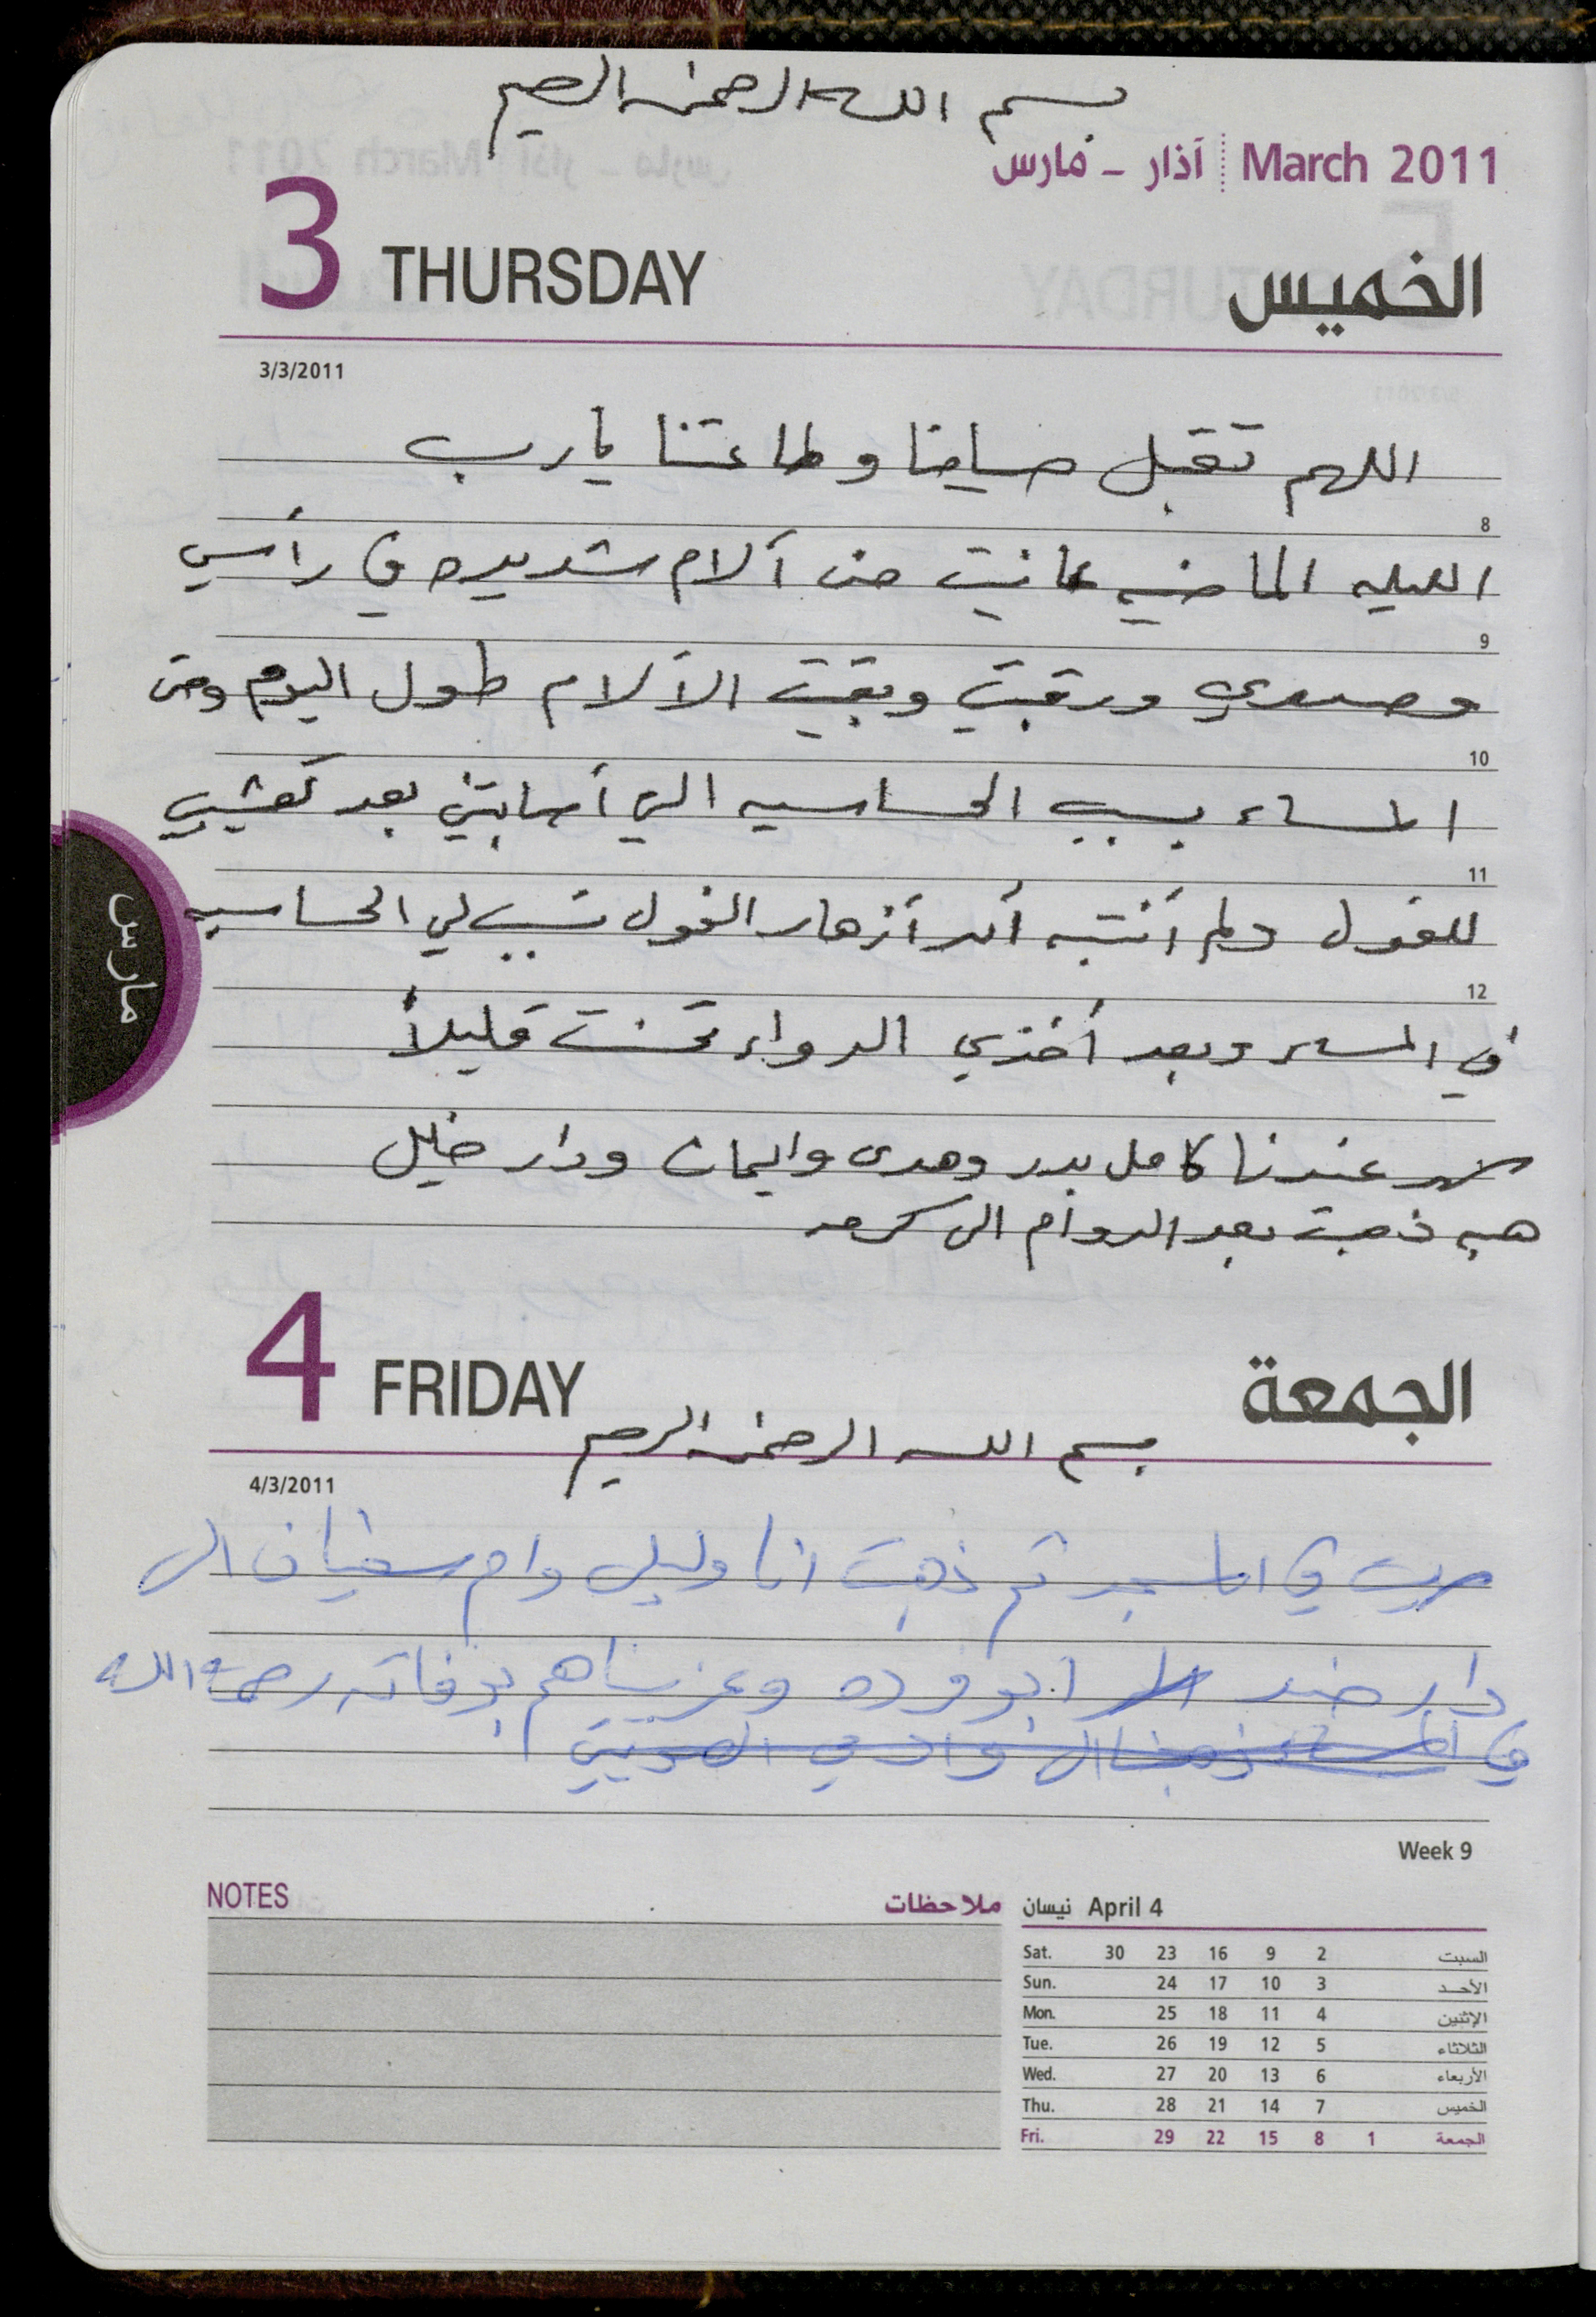 بسم الله الرحمن الرحيم
March 2011 آذار - مارس
3 THURSDAY الخميس
3/3/2011
اللهم تقبل صيامنا وطاعتنا يا رب
8
الليله الماضيه عانيت من آلام شديده في رأسي
9
وصدري ورقبتي وبقيت الآلام طول اليوم وحتى
10
المساء بسبب الحساسيه التي أصابتني بعد تعشيبي
11
للفول ولم أنتبه أن أزهار الفول تسبب لي الحساسيه
12
في المساء وبعد أخذي الدواء تحسنت قليلاً
سهر عندنا كامل بدر وهدى وايمان ودار خليل
هبه ذهبت بعد الدوام الى كرمه
مارس
4 FRIDAY الجمعة
بسم الله الرحمن الرحيم
4/3/2011
صليت في المسجد ثم ذهبت انا وليلى وام سفيان الى
دار ابو فوده وعزيناهم بوفاته رحمه الله
في المساء ذهبنا الى
Week 9
NOTES ملاحظات
نيسان April 4
Sat. 30 23 16 9 2 السبت
Sun. 24 17 10 3 الأحد
Mon. 25 18 11 4 الإثنين
Tue. 26 19 12 5 الثلاثاء
Wed. 27 20 13 6 الأربعاء
Thu. 28 21 14 7 الخميس
Fri. 29 22 15 8 1 الجمعة